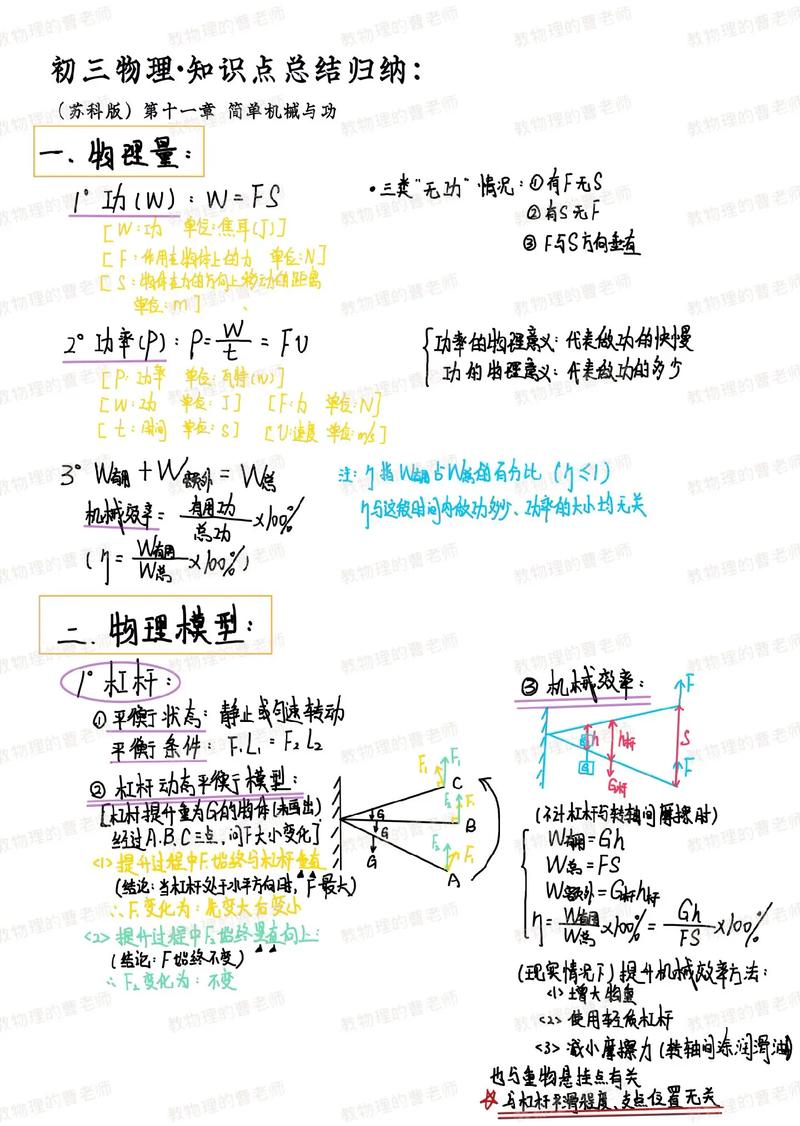 初三物理·知识点总结归纳：
（苏科版）第十一章 简单机械与功
一. 物理量：
1° 功(W)：W=FS
[W:功 单位:焦耳(J)]
[F:作用在物体上的力 单位:N]
[S:物体在力的方向上移动的距离
单位:m]
·三类"无功"情况：①有F无S
②有S无F
③F与S方向垂直
2° 功率(P)：P=W/t=Fυ
[P:功率 单位:瓦特(w)]
[W:功 单位:J] [F:力 单位:N]
[t:时间 单位:s] [υ:速度 单位:m/s]
功率的物理意义：代表做功的快慢
功的物理意义：代表做功的多少
3° W有用+W额外=W总
机械效率=有用功/总功×100%
(η=W有用/W总×100%)
注：η指W有用占W总的百分比（η≤1）
η与这段时间内做功多少、功率的大小均无关
二. 物理模型：
1° 杠杆：
①平衡状态：静止或匀速转动
平衡条件：F₁L₁=F₂L₂
②杠杆动态平衡模型：
[杠杆提升重为G的物体(未画出)
经过A.B.C三点,问F大小变化]
<1>提升过程中F₁始终与杠杆垂直
(结论:当杠杆处于水平方向时，F最大)
∴F₁变化为：先变大后变小
<2>提升过程中F₂始终竖直向上：
(结论：F始终不变)
∴F₂变化为：不变
F₁ F₂
C
G F₂ F₁
G B
G F₂ F₁
A
③机械效率：
F
h h杆 S
G G杆 F
(不计杠杆与转轴间摩擦时)
W有用=Gh
W总=FS
W额外=G杆h杆
η=W有用/W总×100%=Gh/FS×100%
(现实情况下)提升机械效率方法：
<1>增大物重
<2>使用轻质杠杆
<3>减小摩擦力(转轴间涂润滑油)
也与重物悬挂点有关
☆与杠杆平滑程度、支点位置无关
教物理的曹老师